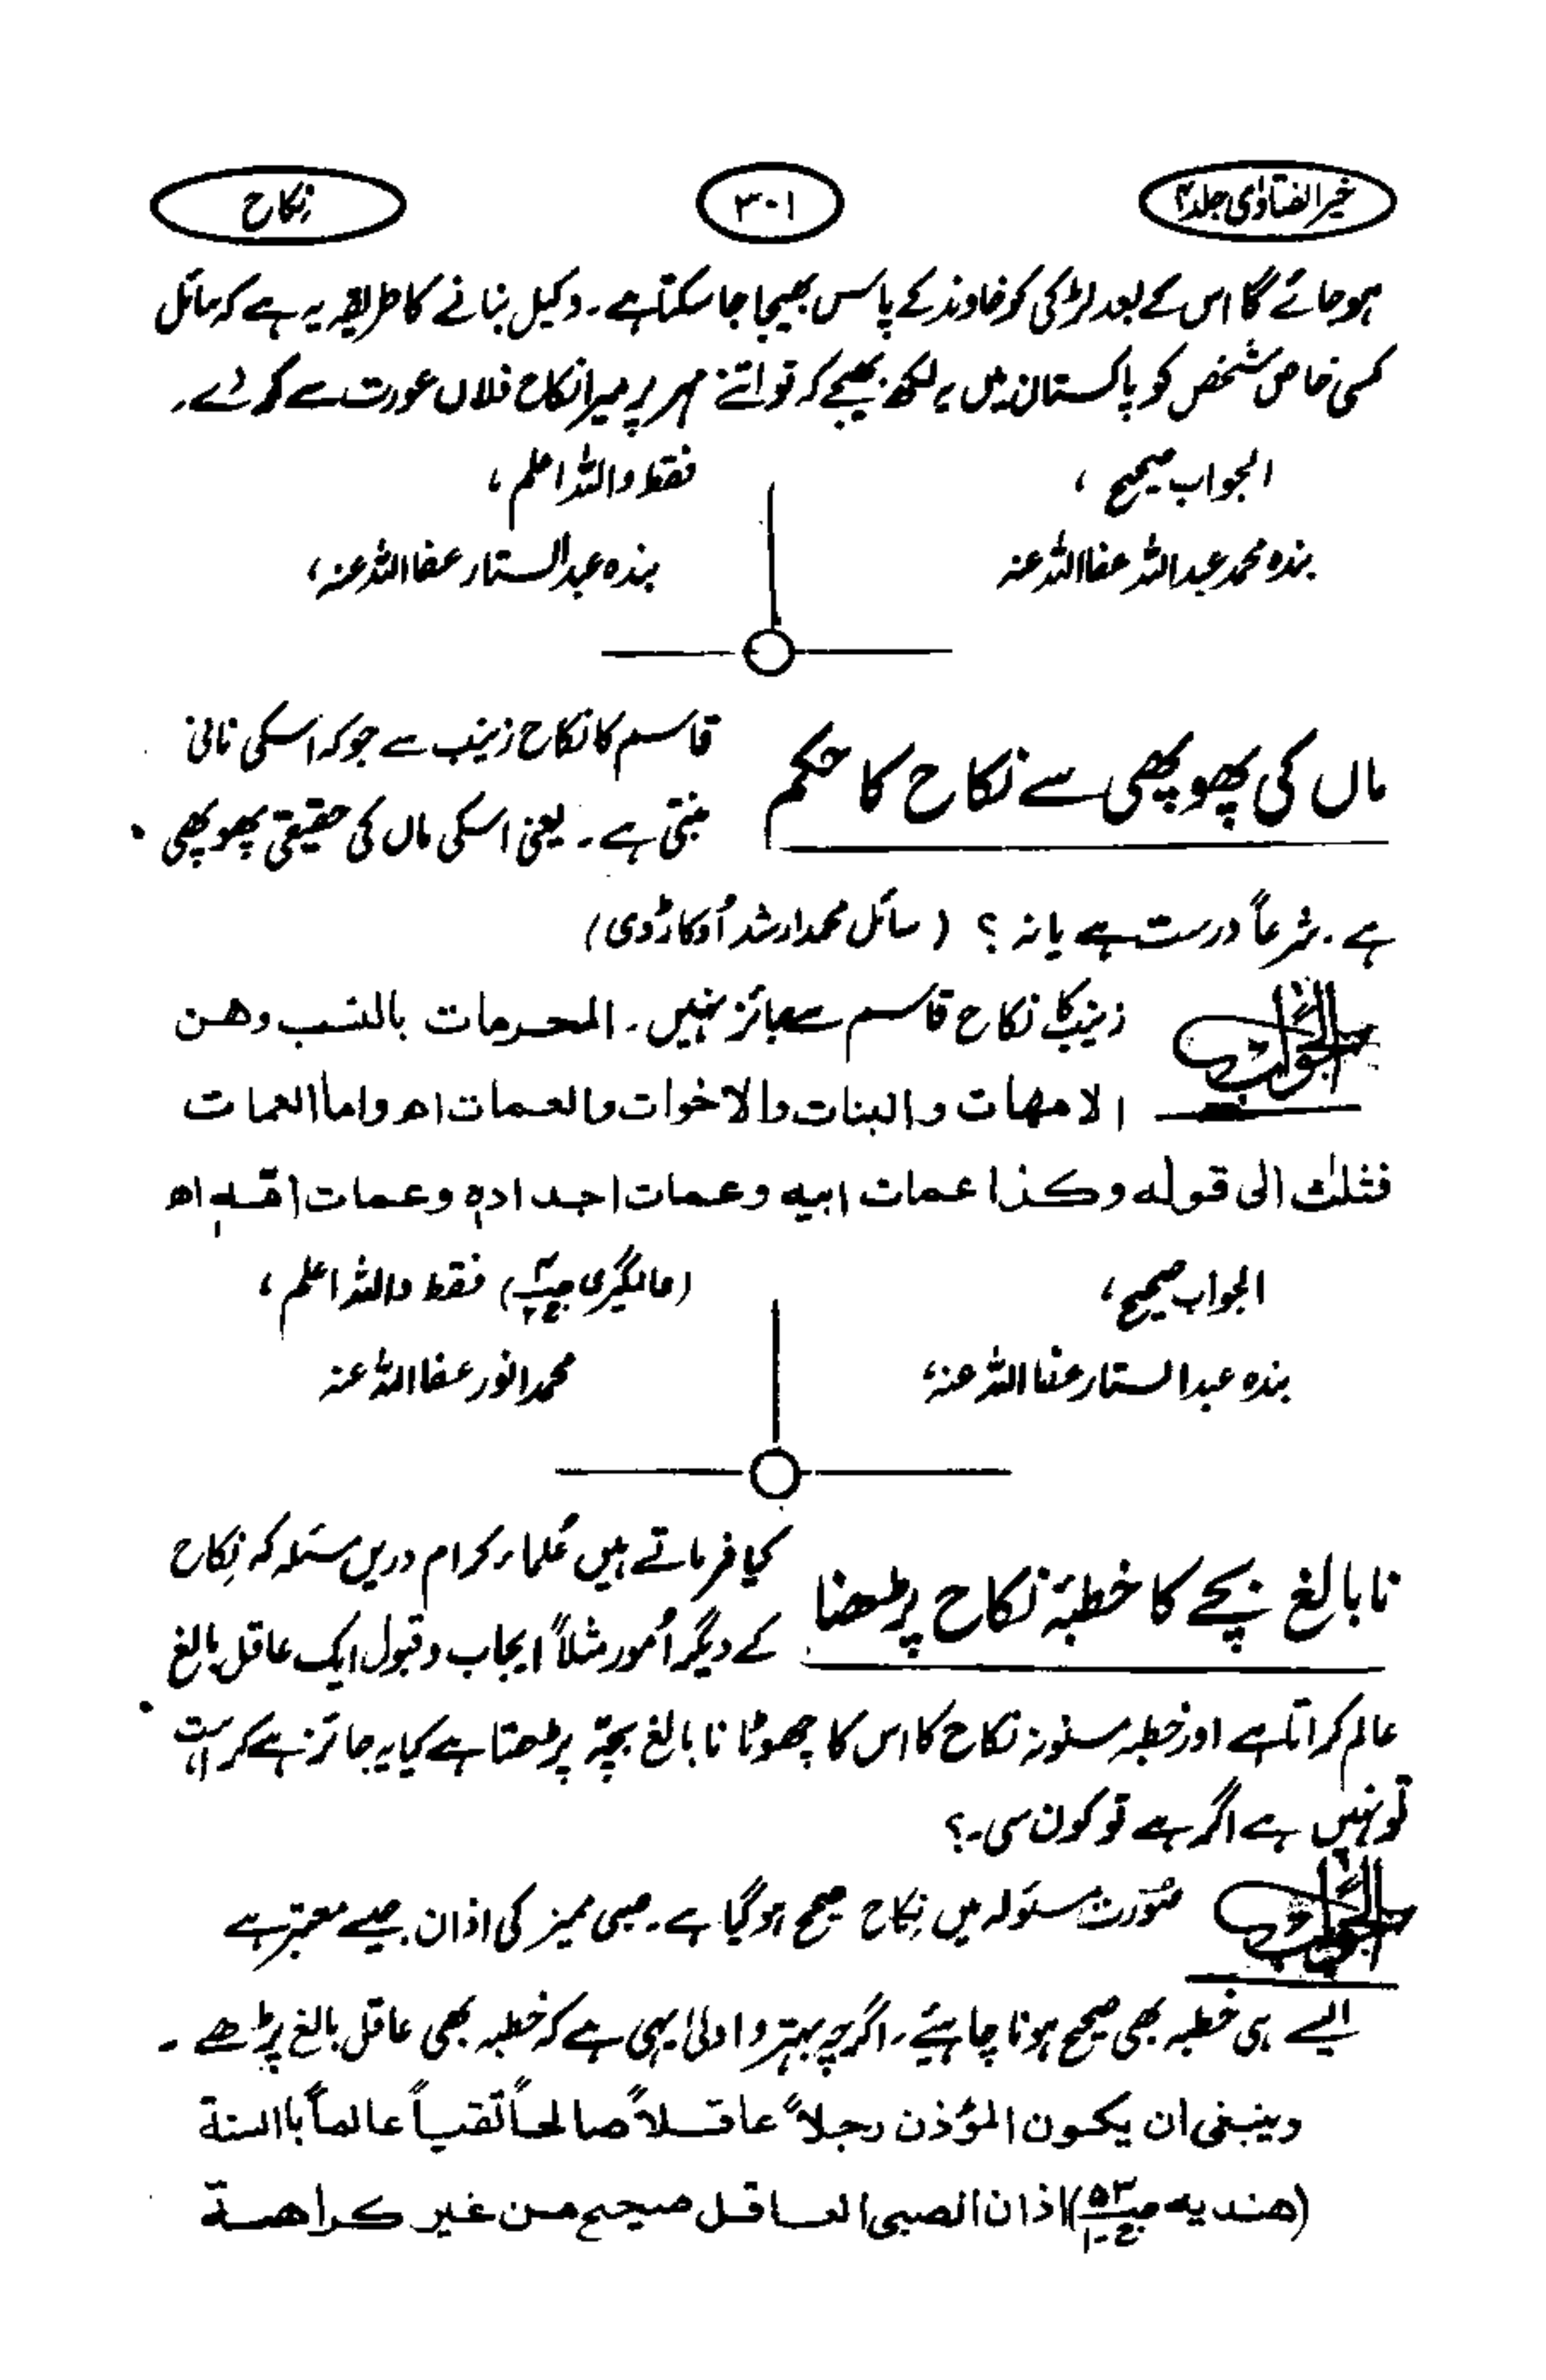 خیر الفتاوی جلد ۴
۳۰۱
نکاح
ہوجائے گا اس کے بعد لڑکی کو خاوند کے پاس بھیجا جا سکتا ہے۔ وکیل بنانے کا طریقہ یہ ہے کہ سائل
کسی خاص شخص کو پاکستان میں یہ لکھ بھیجے کہ تو اتنے مہر پر میرا نکاح فلاں عورت سے کر دے۔
الجواب صحیح، فقط واللہ اعلم،
بندہ محمد عبداللہ عفا اللہ عنہ بندہ عبدالستار عفا اللہ عنہ،
ماں کی پھوپھی سے نکاح کا حکم
قاسم کا نکاح زینب سے جو کہ اسکی نانی
بنتی ہے۔ یعنی اسکی ماں کی حقیقی پھوپھی
ہے۔ شرعاً درست ہے یا نہ؟ (سائل محمد ارشد اُوکاڑوی)
الجواب زینب کا نکاح قاسم سے جائز نہیں۔ المحرمات بالنسب وهن
الامهات والبنات والاخوات والعمات اھ واما العمات
فثلث الی قوله وکذا عمات ابیه وعمات اجداده وعمات امه اھ
الجواب صحیح، (عالمگیری) فقط واللہ اعلم،
بندہ عبدالستار عفا اللہ عنہ، محمد انور عفا اللہ عنہ
نابالغ بچے کا خطبۂ نکاح پڑھنا
کیا فرماتے ہیں عُلماء کرام دریں مسئلہ کہ نِکاح
کے دیگر اُمور مثلاً ایجاب وقبول ایک عاقل بالغ
عالم کراتا ہے اور خطبہ مسنونہ نکاح کا اس کا چھوٹا نابالغ بچّہ پڑھتا ہے کیا یہ جائز ہے کراہت
تو نہیں ہے اگر ہے تو کون سی۔؟
الجواب صُورت مسئولہ میں نِکاح صحیح ہوگیا ہے۔ صبی ممیز کی اذان جیسے معتبر ہے
ایسے ہی خطبہ بھی صحیح ہونا چاہیئے۔ اگرچہ بہتر و اولیٰ یہی ہے کہ خطبہ بھی عاقل بالغ پڑھے۔
وینبغی ان یکون المؤذن رجلاً عاقلاً صالحاً تقیاً عالماً باالسنة
(هندیه ص۵۳ ج۱) اذان الصبی العاقل صحیح من غیر کراهة